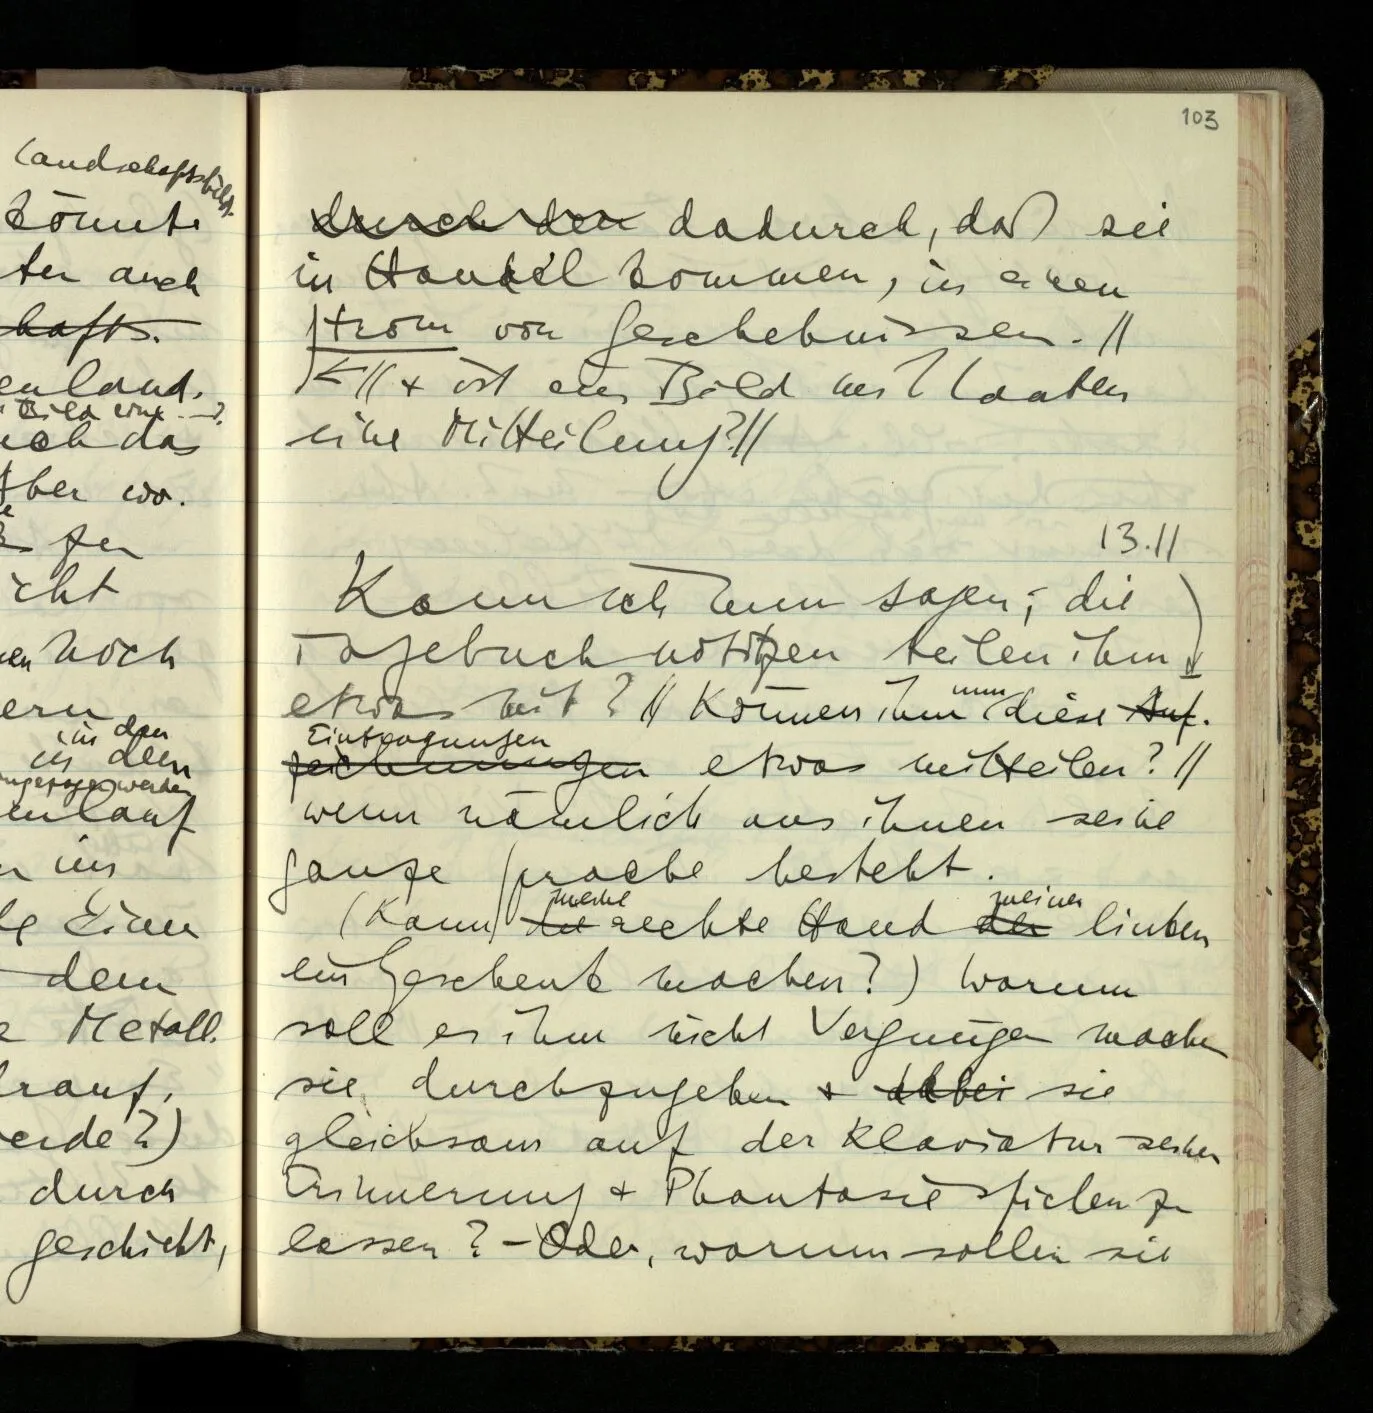 Landschaftsbild.
könnte
ter auch
hafts.
enland.
Bild eine
uch das
Aber wo.
zu
icht
noch
ern
in den
in dem
werden
enlauf
ins
Einen
dem
Metall
drauf,
erde?)
durch
geschickt,
103
durch den dadurch, daß sie
in Handel kommen, in einen
Strom von Geschehnissen. //
// & ist ein Bild
eine Mitteilung? //
13.11
Kann ich nun sagen, die
Tagebuchnotizen teilen ihm
etwas mit? // Können ihm nun diese Auf-
Eintragungen
zeichnungen etwas mitteilen? //
wenn nämlich aus ihnen seine
ganze Sprache besteht.
meine meiner
(Kann die rechte Hand der linken
ein Geschenk machen?) Warum
soll es ihm nicht Vergnügen machen
sie durchzugehen & dabei sie
gleichsam auf der Klaviatur seiner
Erinnerung & Phantasie spielen zu
lassen? – Oder, warum sollen sie